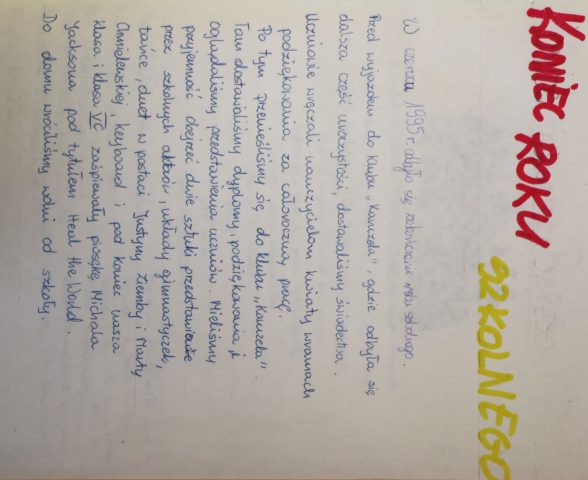 KONIEC ROKU
SZKOLNEGO
W czerwcu 1995 r. odbyło się zakończenie roku szkolnego.
Przed wyjazdem do klubu „Kawuzda", gdzie odbyła się
dalsza część uroczystości, dostawaliśmy świadectwa.
Uczniowie wręczali nauczycielom kwiaty w ramach
podziękowania za całoroczną pracę.
Po tym przenieśliśmy się do klubu „Kawuzda".
Tam dostawaliśmy dyplomy, podziękowania i
oglądaliśmy przedstawienia uczniów. Mieliśmy
przyjemność obejrzeć dwie sztuki przedstawione
przez szkolnych aktorów, układy gimnastyczek,
tańce, duet w postaci Justyny Ziemby i Marty
Chmielewskiej, keyboard i pod koniec nasza
klasa i klasa VC zaśpiewały piosękę Michala
Jacksona pod tytułem Heal the World.
Do domu wróciliśmy wolni od szkoły.